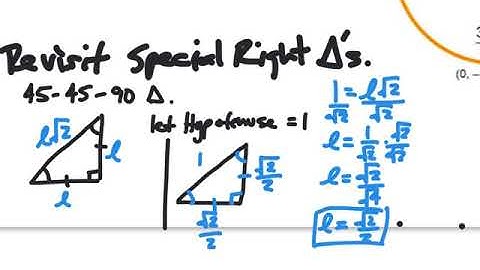 Revisit Special Right Δ's.
45-45-90 Δ.
let Hypotenuse = 1
l√2
l
l
1
√2/2
√2/2
1/√2 = l√2/√2
l = 1/√2 · √2/√2
l = √2/√4
l = √2/2
3
(0, −